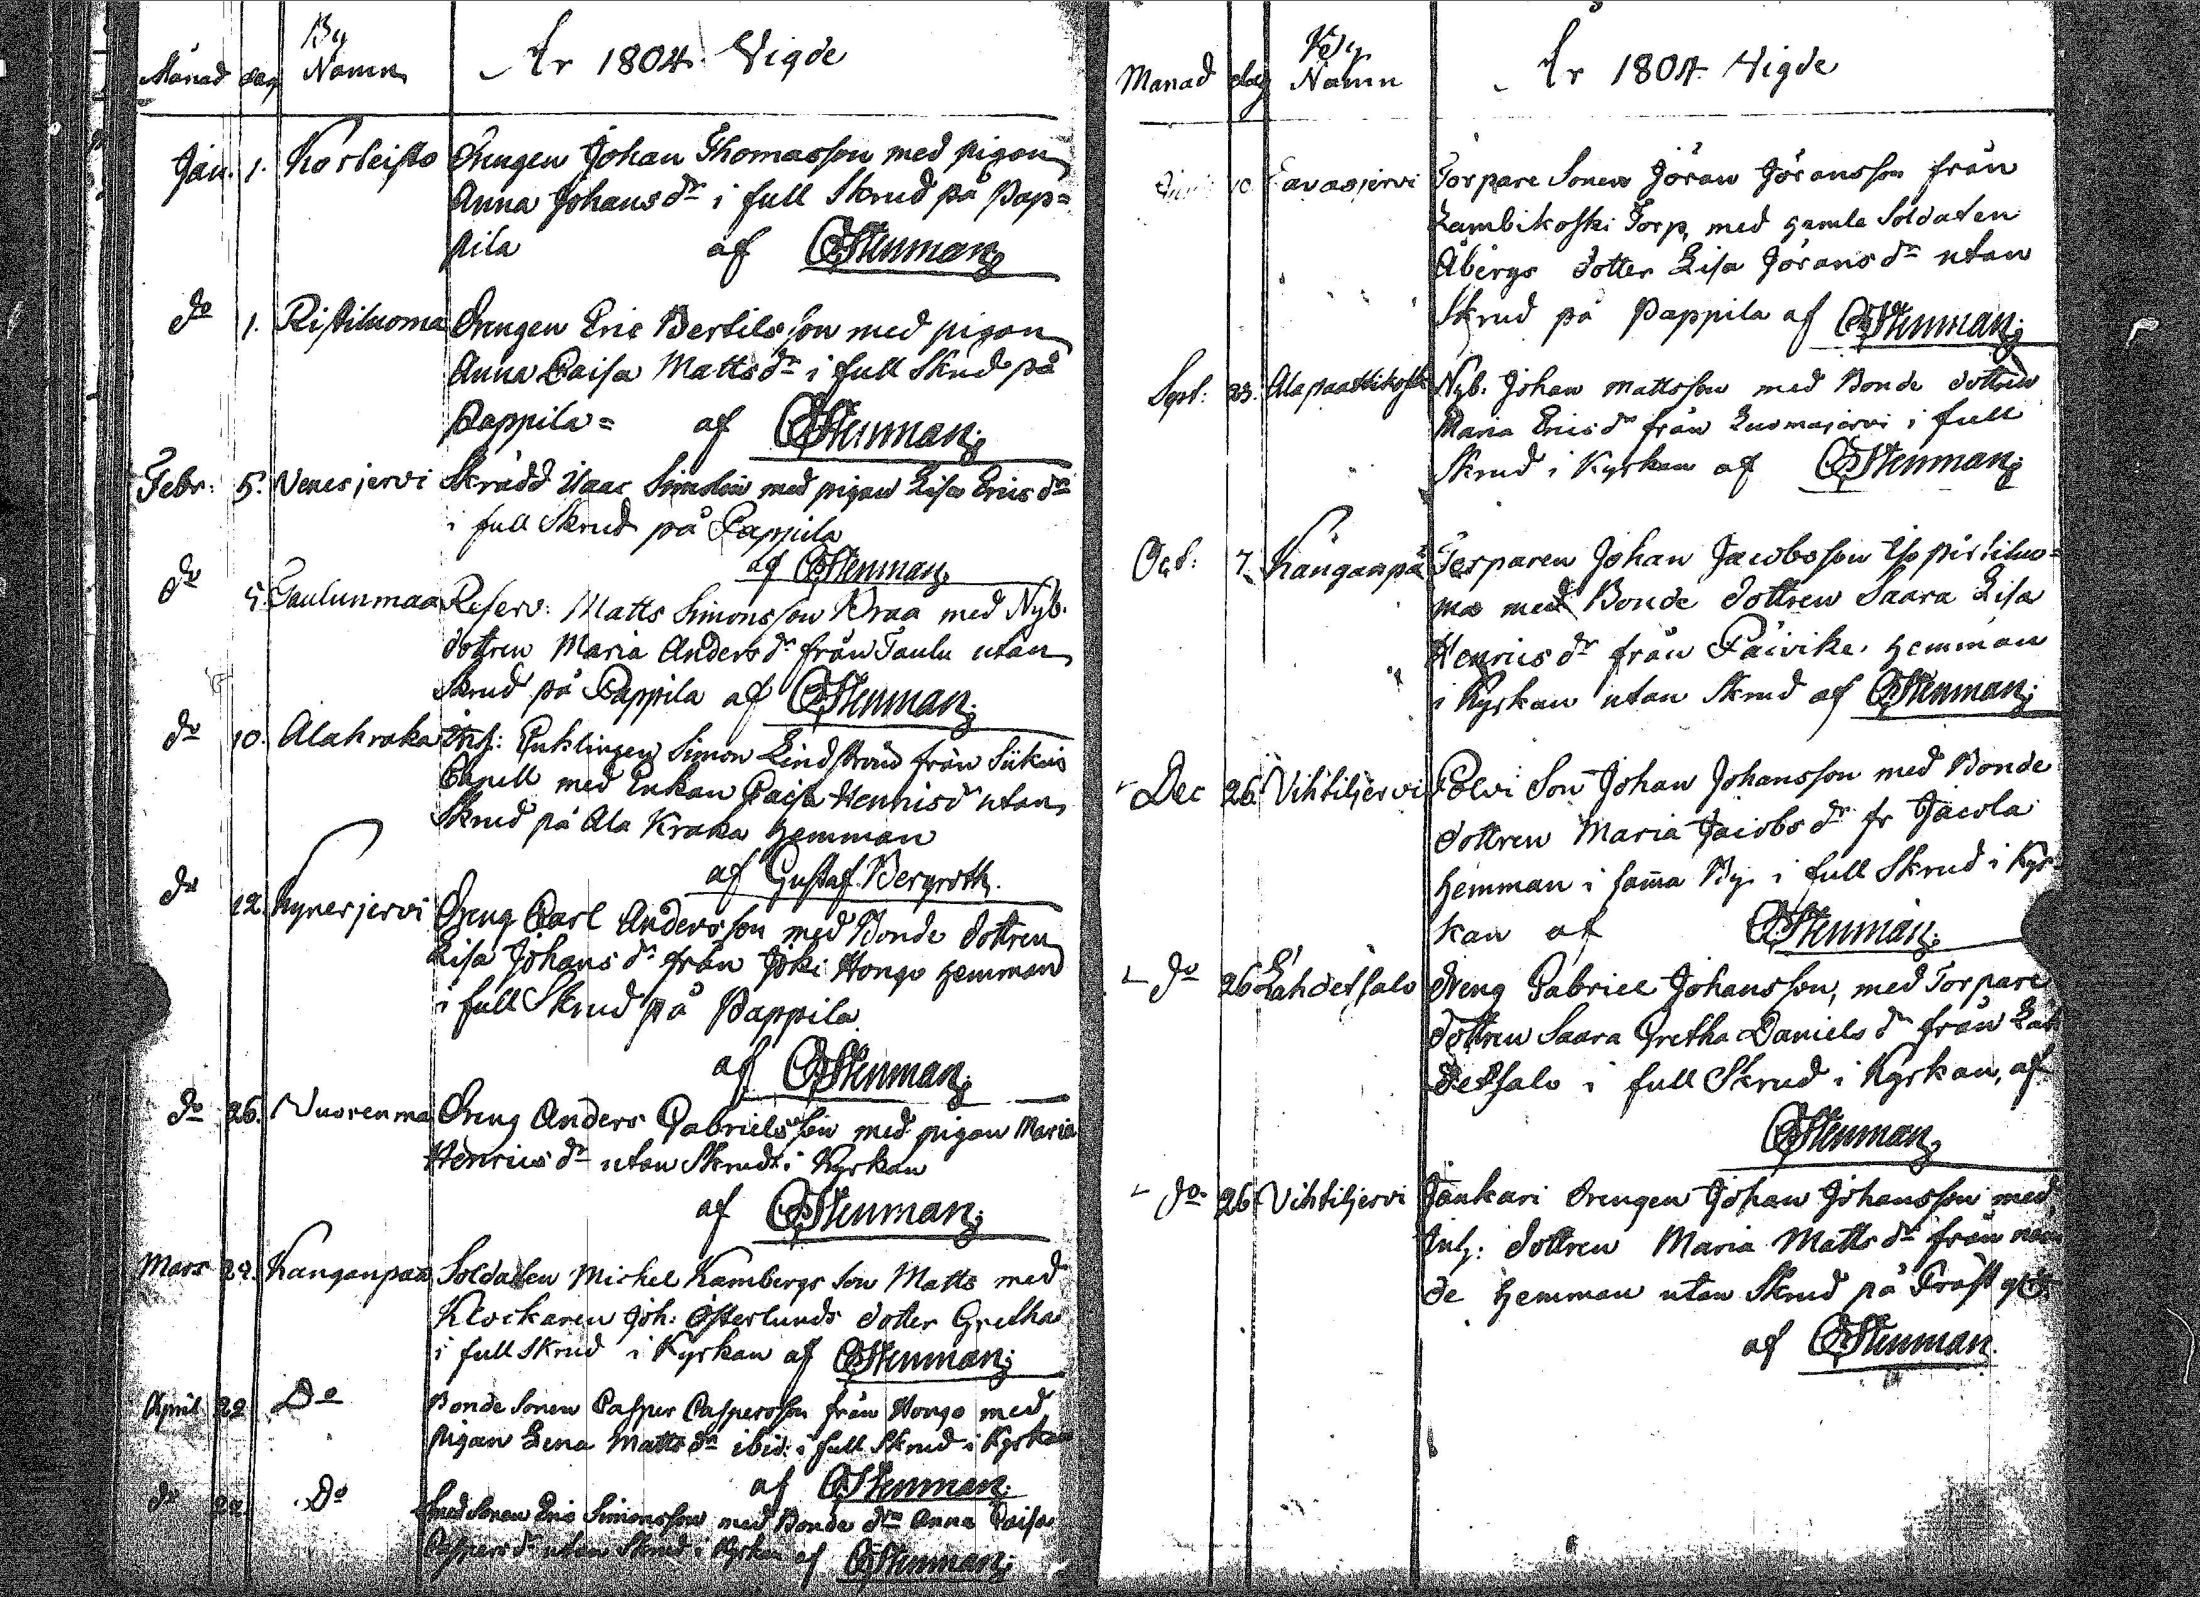 Månad dag By Namn År 1804. Vigde
Jan. 1. Korteisto Drengen Johan Thomasson med pigan
Anna Johans dr i full Skrud på Pap=
pila af Stenman
do 1. Ristiluoma Drengen Eric Bertilsson med pigan
Anna Caisa Matts dr i full Skrud på
Pappila = af Stenman
Febr: 5. Venesjervi Skrädd Isaac med pigan Lisa Erics dr
i full Skrud på Pappila
af Stenman
do 5. Taulunmaa Reserv: Matts Simonsson Kraa med Nyb.
dottren Maria Anders dr från Taulu utan
Skrud på Pappila af Stenman
do 10. Alahraka Enklingen Simon Lindström från Siikais
Capell med Enkan Caisa Henrics dr utan
Skrud på Ala Kraka hemman
af Gustaf Bergroth.
do 12. Kynesjervi Dreng Carl Andersson med Bonde dottren
Lisa Johans dr från Joki Hongo hemman
i full Skrud på Pappila
af Stenman
do 26. Vuorenma Dreng Anders Gabrielsson med pigan Maria
Henrics dr utan Skrud i Kyrkan
af Stenman
Mars Kanganpää Soldaten Michel Kambergs Son Matts med
Klockaren Joh: Österlunds dotter Gretha
i full Skrud i Kyrkan af Stenman
April 22 Do Bonde Sonen Casper Caspersson från Hongo med
pigan Lena Matts dr ibid: i full Skrud i Kyrkan
af Stenman
do 22. Do Sonen Eric Simonsson med Bonde dr Anna Caisa
Caspers dr utan Skrud i Kyrkan af Stenman
Manad dag By Namn År 1804. Vigde
Tavasjervi Torpare Sonen Jöran Jöransson från
Lambikoski Torp, med gamla Soldaten
Åbergs dotter Lisa Jörans dr utan
Skrud på Pappila af Stenman
Sept: 23. Alapaattikoski Nyb. Johan Mattsson med Bonde dottren
Maria Erics dr från Luomajervi i full
Skrud i Kyrkan af Stenman
Oct: 7. Kånganpä Torparen Johan Jacobsson
ma med Bonde dottren Saara Lisa
Henrics dr från Päivike hemman
i Kyrkan utan Skrud af Stenman
Dec 26. Vihtiljervi Polvi Son Johan Johansson med Bonde
dottren Maria Jacobs dr fr Jacola
hemman i samma By i full Skrud i Kyr-
kan af Stenman
do 26 Lahdetsalo Dreng Gabriel Johansson, med Torpare
dottren Saara Gretha Daniels dr från Lah
detsalo i full Skrud i Kyrkan, af
Stenman
do 26. Vihtiljervi Jankari Drengen Johan Johansson med
Inh: dottren Maria Matts dr från
de hemman utan Skrud på Prästg
af Stenman